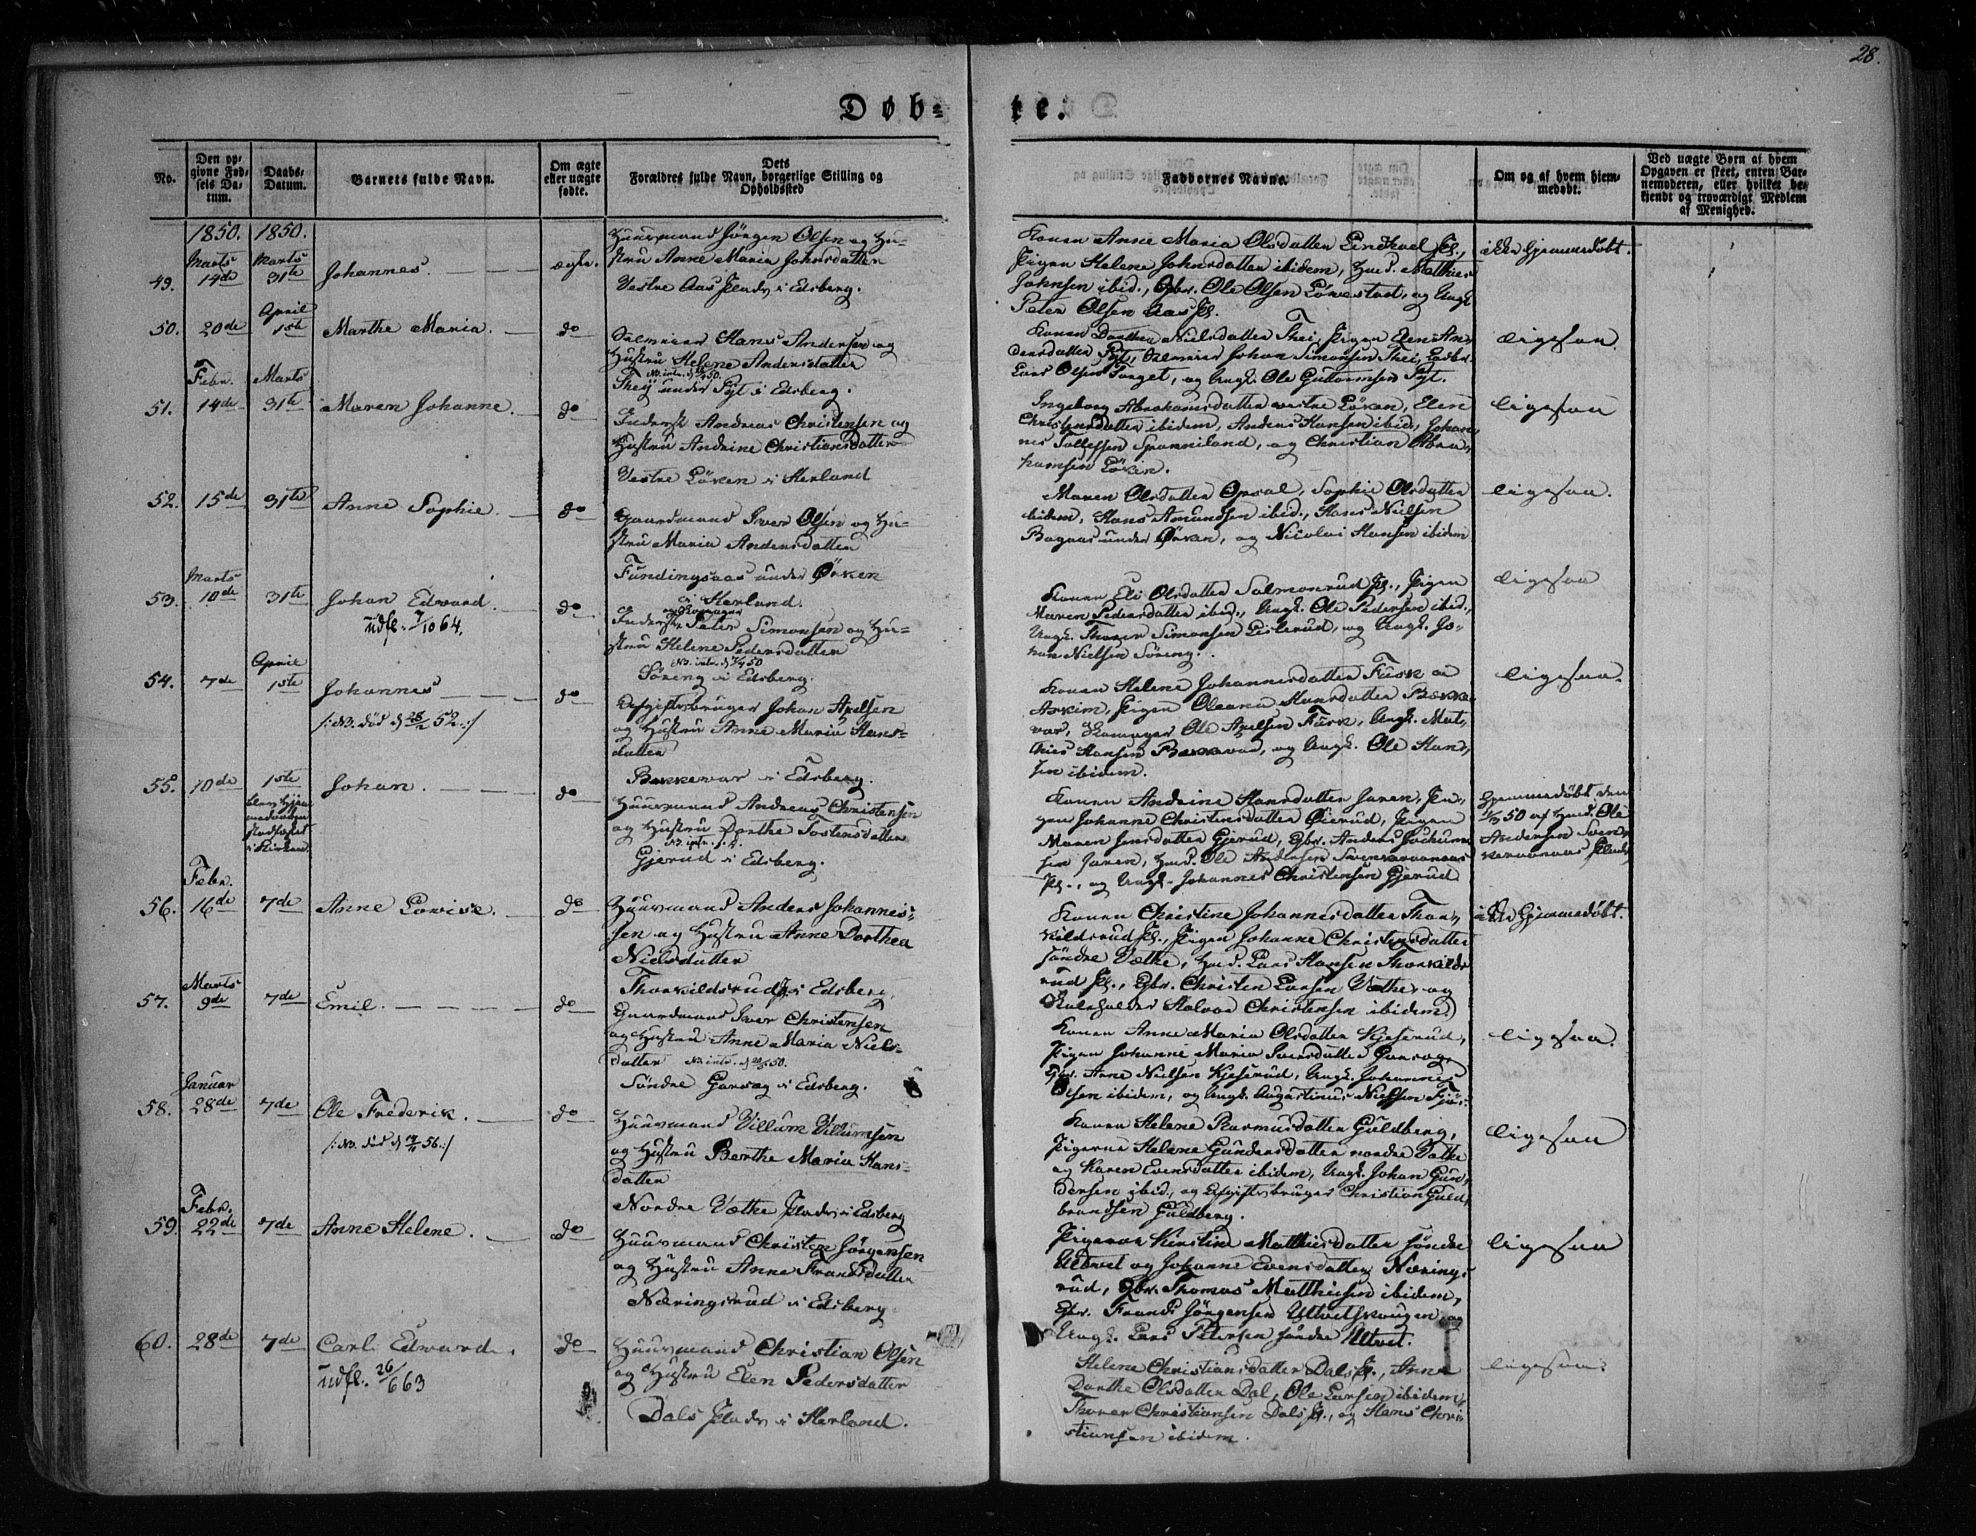 28.
Døb-
te.
No.
Den op-
givne Fød-
sels Da-
tum.
Daabs-
Datum.
Barnets fulde Navn.
Om ægte
eller uægte
fødte.
Dets
Forældres fulde Navn, borgerlige Stilling og
Opholdssted
Faddernes Navne.
Om og af hvem hjem-
medøbt.
Ved uægte Børn af hvem
Opgaven er skeet, enten Bar-
nemoderen, eller hvilket be-
kjendt og troværdigt Medlem
af Menighed.
1850. 1850.
49. Marts 14de Marts 31te Johannes. ægte.
Huusmand Jörgen Olsen og Hu-
stru Anne Maria Johnsdatter
Vestre Aas Plads i Edsberg.
Konen Anne Maria Olsdatter Lindhol Pl.,
Pigen Helene Johnsdatter ibidem, Hmd. Matthis
Johnsen ibid., Gbr. Ole Olsen Lövestad, og Ungk.
Peter Olsen Aas Pl.
ikke Hjemmedøbt.
50. 20de April 1ste Marthe Maria. do
Hans Andersen og
Hustru Helene Andersdatter
Thej under Fyl i Edsberg.
Konen Dorthea Nielsdatter Thei, Pigen Elen An-
dersdatter Johan Simonsen Thei,
Lars Olsen Torget, og Ungk. Ole Guttormsen
ligesaa.
51. Febr. 14de Marts 31te Maren Johanne. do
Inderst Andreas Christensen og
Hustru Andrine Christiansdatter
Vestre Löken i Herland
Ingeborg Abrahamsdatter vestre Löken, Elen
Christensdatter ibidem, Anders Hansen ibid., Johan-
nes Tollefsen og Christian Abra-
hamsen Löken.
ligesaa
52. 15de 31te Anne Sophie. do
Gaardmand Iver Olsen og Hu-
stru Maria Andersdatter
Fundingsaas under Ørken
i Herland.
Maren Olsdatter Opsal, Sophie Olsdatter
ibidem, Hans Amundsen ibid., Hans Nielsen
under Ørken, og Nicolai Hansen ibidem
ligesaa.
53. Marts 10de 31te Johan Edward. do
udfl. 7/10 64.
Inderst Peter Simonsen og Hu-
stru Helene Pedersdatter
Söreng i Edsberg.
Konen Eli Olsdatter Salmonrud Pl., Pigen
Maren Pedersdatter ibid., Ungk. Ole Pedersen ibid.,
Ungk. Thorer Simonsen Listerud, og Ungk. Jo-
han Nielsen Söreng.
ligesaa
54. 7de April 1ste Johannes do
/: NB. død d 28/2 52 :/
Opgiftsbruger Johan Axelsen
og Hustru Anne Maria Hans-
datter
Bekkevar i Edsberg.
Konen Helene Johannesdatter Fusk
Askim, Pigen Oleana Hansdatter Bekke-
var, Ole Axelsen Fusk, Ungk. Mat-
thies Hansen Bekkevar, og Ungk. Ole Han-
sen ibidem.
ligesaa.
55. 10de 1ste Johan. do
blev Hjem-
medaaben
stadfæstet
i Kirken
Huusmand Andreas Christensen
og Hustru Dorthe Tostensdatter
Gjerud i Edsberg.
Konen Andrine Hansdatter Jaren, Pi-
gen Johanne Christensdatter Øierud, Pigen
Maren Jensdatter Gjerud, Gbr. Anders Jochum-
sen Jaren, Hmd. Ole Andersen
Pl., og Ungk. Johannes Christensen Gjerud
Hjemmedøbt den
af Hmd. Ole
Andersen
56. Febr. 16de 7de Anne Lovise. do
Huusmand Anders Johannes-
sen og Hustru Anne Dorthea
Nielsdatter
Thorkildsrud Pl. i Edsberg.
Konen Christine Johannesdatter Thor-
kildsrud Pl., Pigen Johanne Christensdatter
söndre Vethe, Hmd. Lars Hansen Thorkilds-
rud Pl., Gbr. Christen Larsen Vethe, og
Halvor Christensen ibidem.
ikke Hjemmedøbt.
57. Marts 9de 7de Emil. do
Gaardmand Iver Christensen
og Hustru Anne Maria Niels-
datter
Söndre Garseg i Edsberg.
Konen Anne Maria Olsdatter Kjeserud,
Pigen Johanne Maria Iversdatter Garseg,
Gbr. Arne Nielsen Kjeserud, Ungk. Johannes
Olsen ibidem, og Ungk. Augustinus Nielsen
ligesaa.
58. Januar 28de 7de Ole Frederik. do
Huusmand Villum Villumsen
og Hustru Berthe Maria Hans-
datter
Nordre Vethe Plads i Edsberg
Konen Helene Rasmusdatter Guldberg,
Pigerne Helene Gundersdatter nordre Vethe
og Karen Evensdatter ibidem, Ungk. Johan Gun-
dersen ibid., og Opgiftsbruger Christian Guld-
brandsen Guldberg.
ligesaa
59. Febr. 22de 7de Anne Helene. do
Huusmand Christen Jörgensen
og Hustru Anne Frandsdatter
Næringsrud i Edsberg
Pigerne Kirstine Matthisdatter söndre
Ultvet og Johanne Evensdatter Nærings-
rud, Gbr. Thomas Matthiesen ibidem,
Gbr. Frands Jörgensen Ultvetskougen, og
Ungk. Lars Petersen söndre Ultvet.
ligesaa
60. 28de 7de Carl Edward. do
udfl. 26/6 63
Huusmand Christian Olsen
og Hustru Elen Pedersdatter
Dals Plads i Herland.
Helene Christiansdatter Dals Pl., Anne
Dorthe Olsdatter Dal, Ole Larsen ibidem,
Thorer Christiansen Dals Pl., og Hans Chri-
stiansen ibidem.
ligesaa.